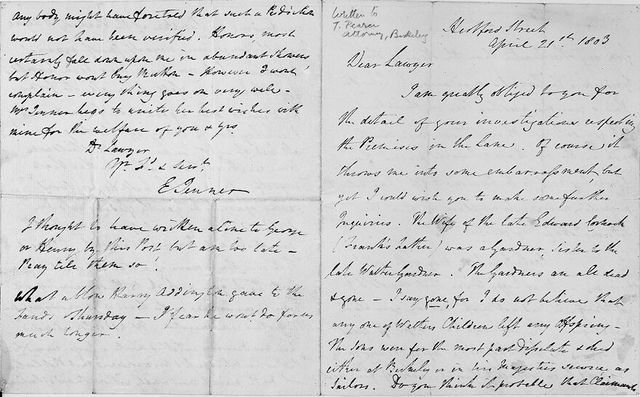 Any body might have foretold that such a Prediction
would not have been verified. Honors most
certainly fall down upon me in abundant Showers
but Honor wont buy Mutton - However I wont
complain - every thing goes on very well -
Mrs Jenner begs to unite her best wishes with
mine for the welfare of you & yrs
Dr Lawyer
Yr &
E Jenner
I thought to have written alone to George
or Henry by this Post but am too late -
Pray tell them so.
What a blow Harry Addington gave to the
bands Thursday - I fear he wont do for us
much longer.
Written to
T. Pearce
attorney, Berkeley
Hertford Street
April 21st 1803
Dear Lawyer
I am greatly obliged to you for
the detail of your investigations respecting
the Premises in the Lane. Of course it
throws me into some embarrassment, but
yet I could wish you to make some further
Inquiries. The Wife of the late Edward
(Frank's Father) was a Gardner, Sister to the
late Walter Gardner. The Gardners are all dead
& gone - I say gone, for I do not believe that
any one of Walters Children left any Offspring -
The Sons were for the most part dissolute & died
either at Berkeley or in his Majesties service as
Sailors. Do you think it probable that Claimants